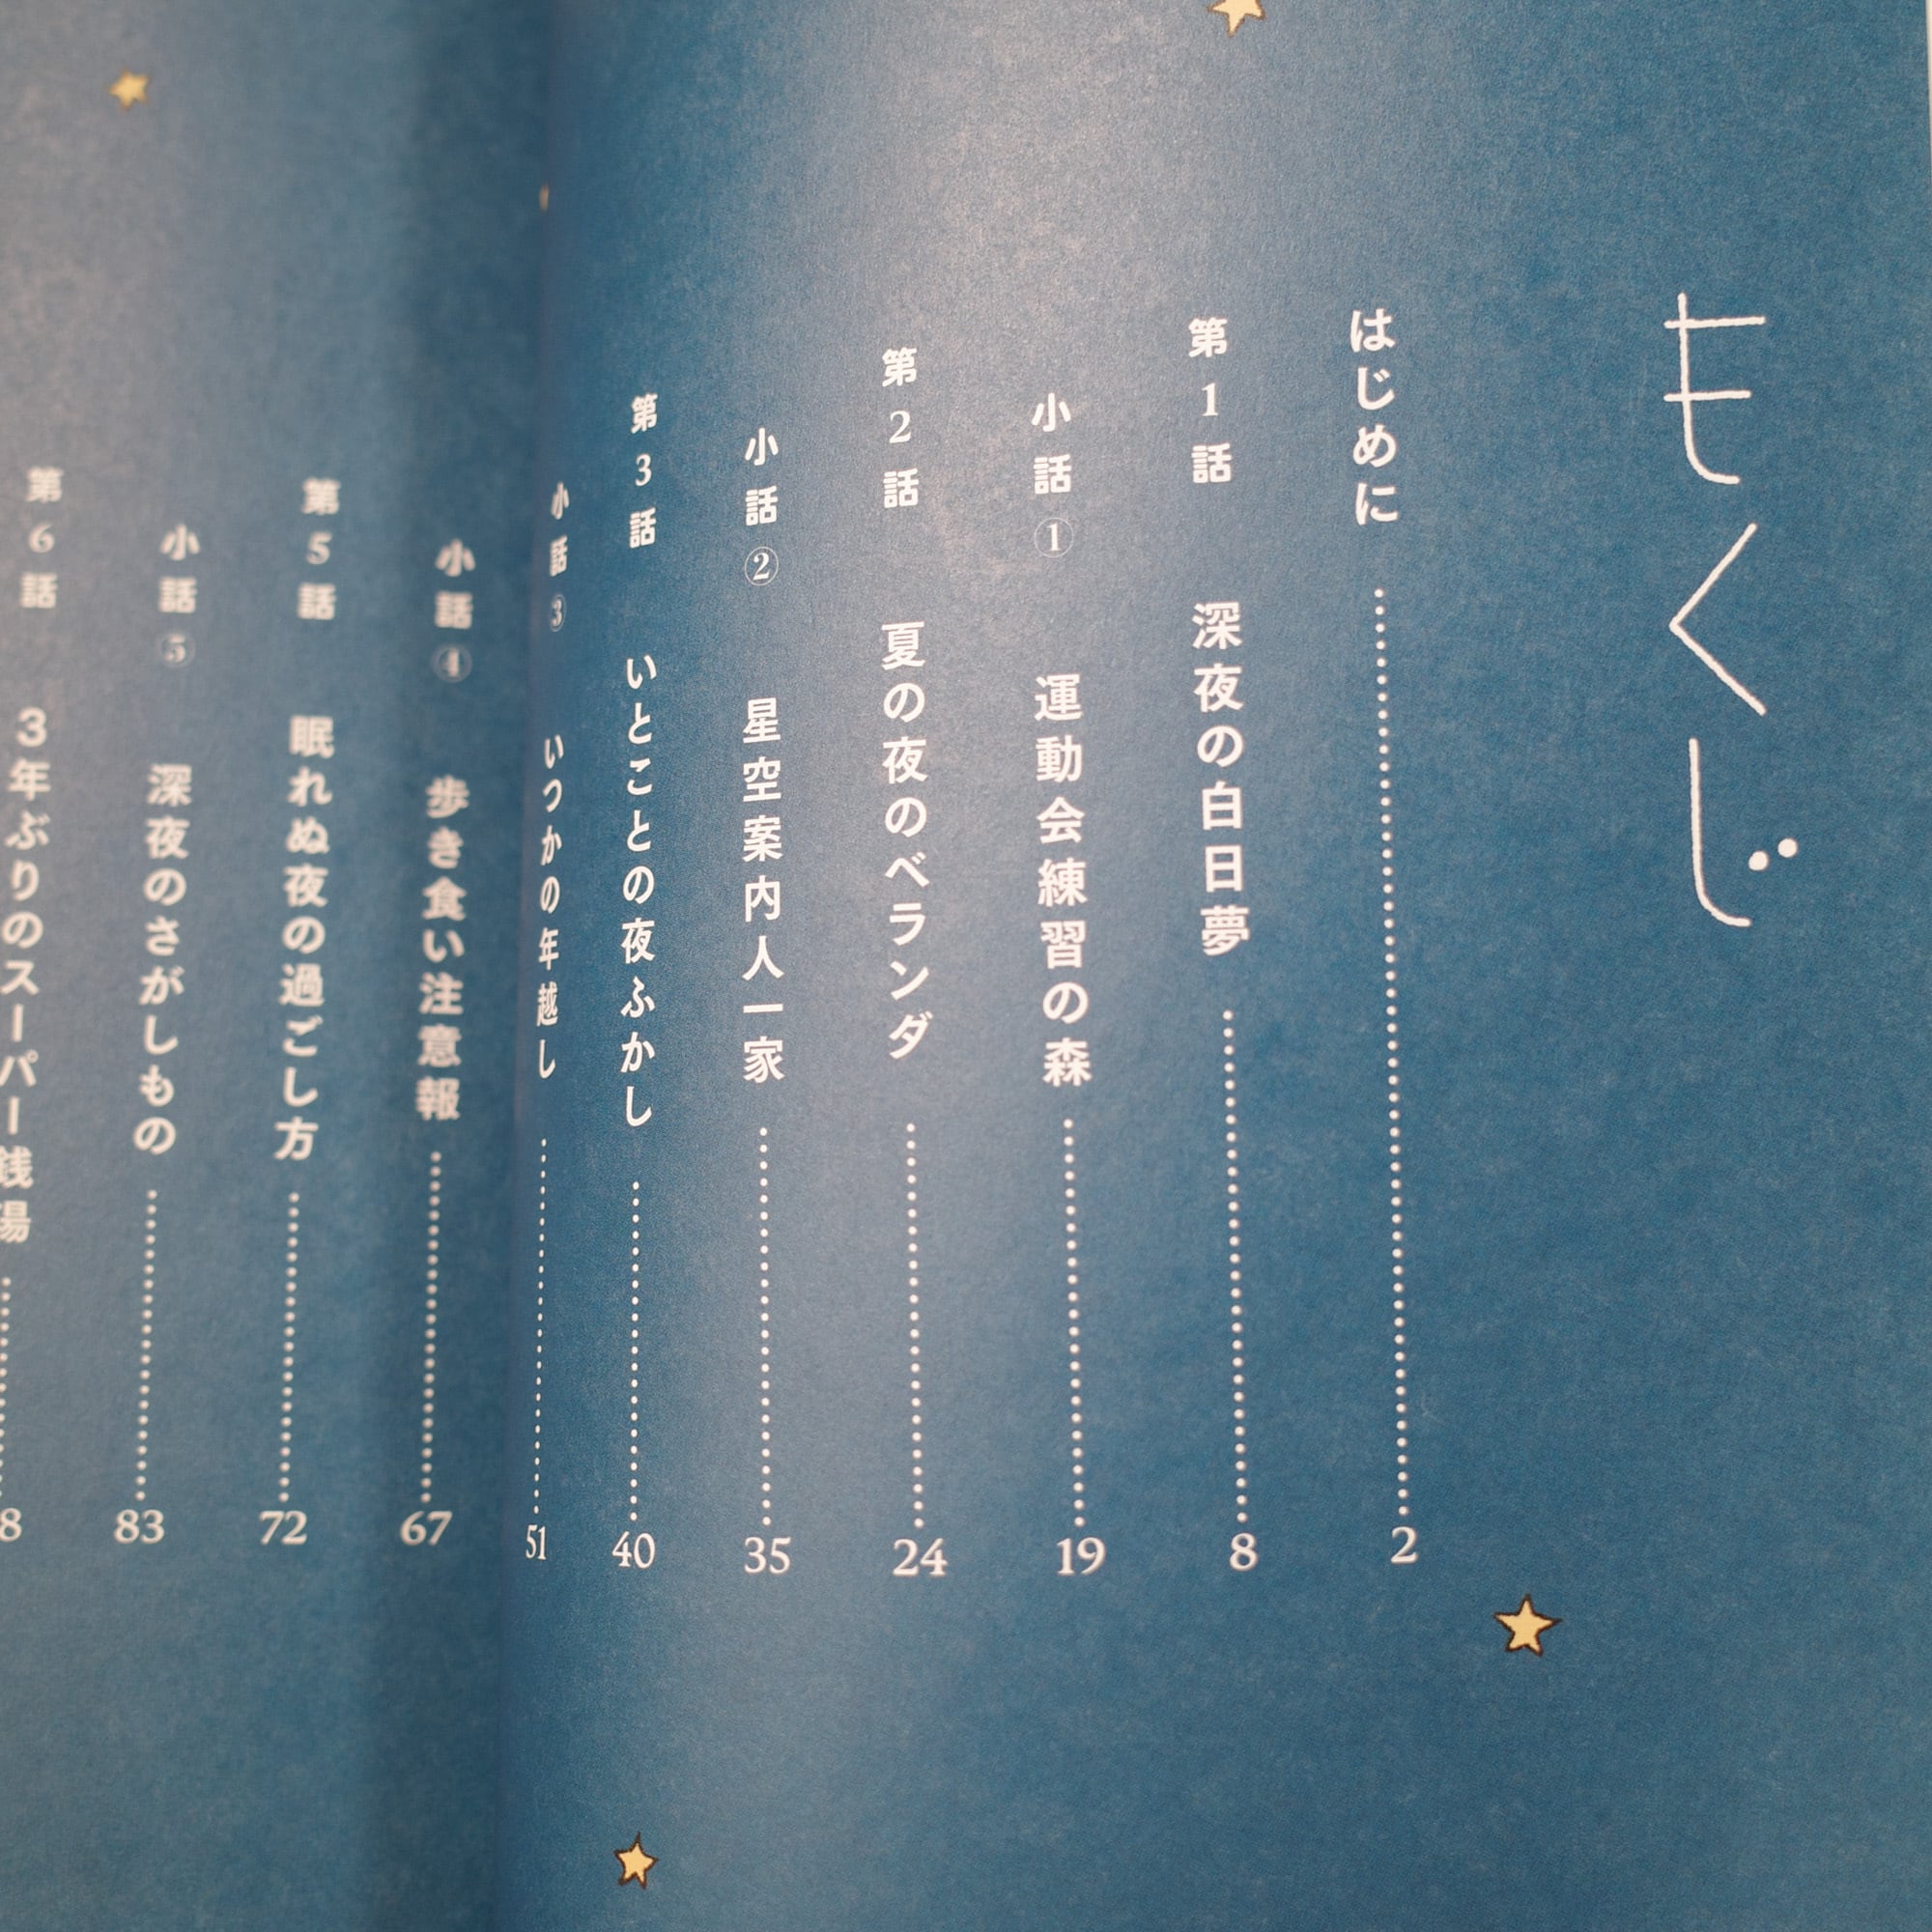 もくじ
はじめに 2
第1話 深夜の白日夢 8
小話① 運動会練習の森 19
第2話 夏の夜のベランダ 24
小話② 星空案内人一家 35
第3話 いとことの夜ふかし 40
小話③ いつかの年越し 51
小話④ 歩き食い注意報 67
第5話 眠れぬ夜の過ごし方 72
小話⑤ 深夜のさがしもの 83
第6話 3年ぶりのスーパー銭湯 8